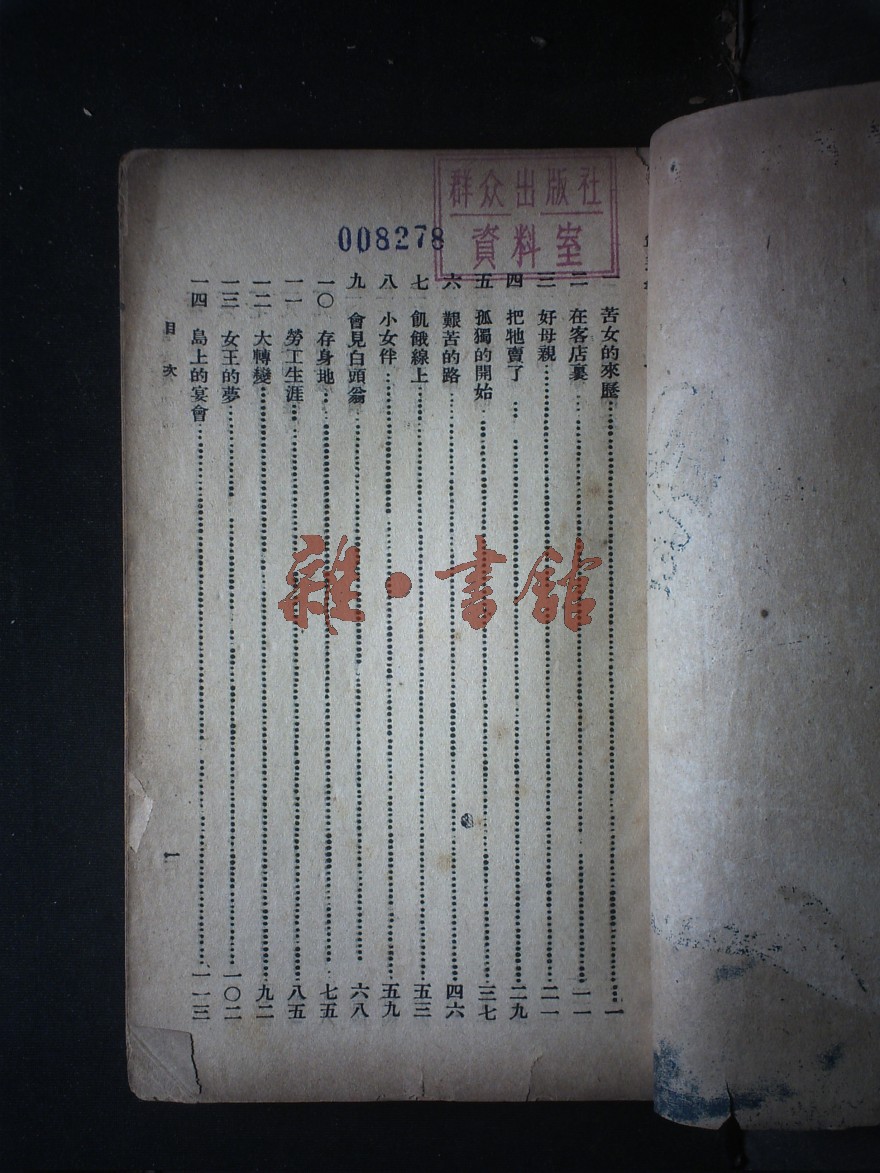 群众出版社
資料室
008278
一 苦女的來歷 一
二 在客店裏 一一
三 好母親 二一
四 把牠賣了 二九
五 孤獨的開始 三七
六 艱苦的路 四六
七 飢餓線上 五三
八 小女伴 五九
九 會見白頭翁 六八
一〇 存身地 七五
一一 勞工生涯 八五
一二 大轉變 九二
一三 女王的夢 一〇二
一四 島上的宴會 一一三
目次
一
雜·書館